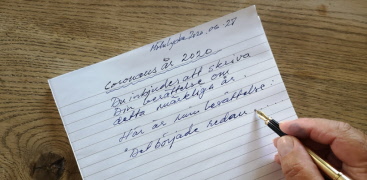 2020-04-28
Coronans år 2020
Du inbjudes att skriva
Din berättelse om
detta märkliga år.
Här är min berättelse:
"Det började redan ....